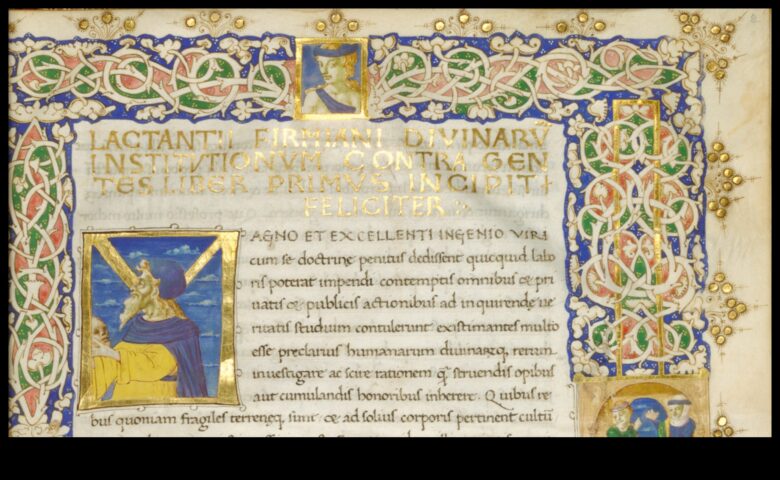 LACTANTII FIRMIANI DIVINARŪ
INSTITVTIONVM CONTRA GEN
TES LIBER PRIMVS INCIPIT
FELICITER
MAGNO ET EXCELLENTI INGENIO VIRI
cum se doctrinę penitus dedissent quicquid labo
ris poterat impendi contemptis omnibus & pri
uatis & publicis actionibus ad inquirendę ue
ritatis studium contulerunt existimantes multo
esse preclarius humanarum diuinarūq, rerum
inuestigare ac scire rationem q̃ struendis opibus
aut cumulandis honoribus inherere. Quibus re
bus quoniam fragiles terrenęq, sunt & ad solius corporis pertinent cultū